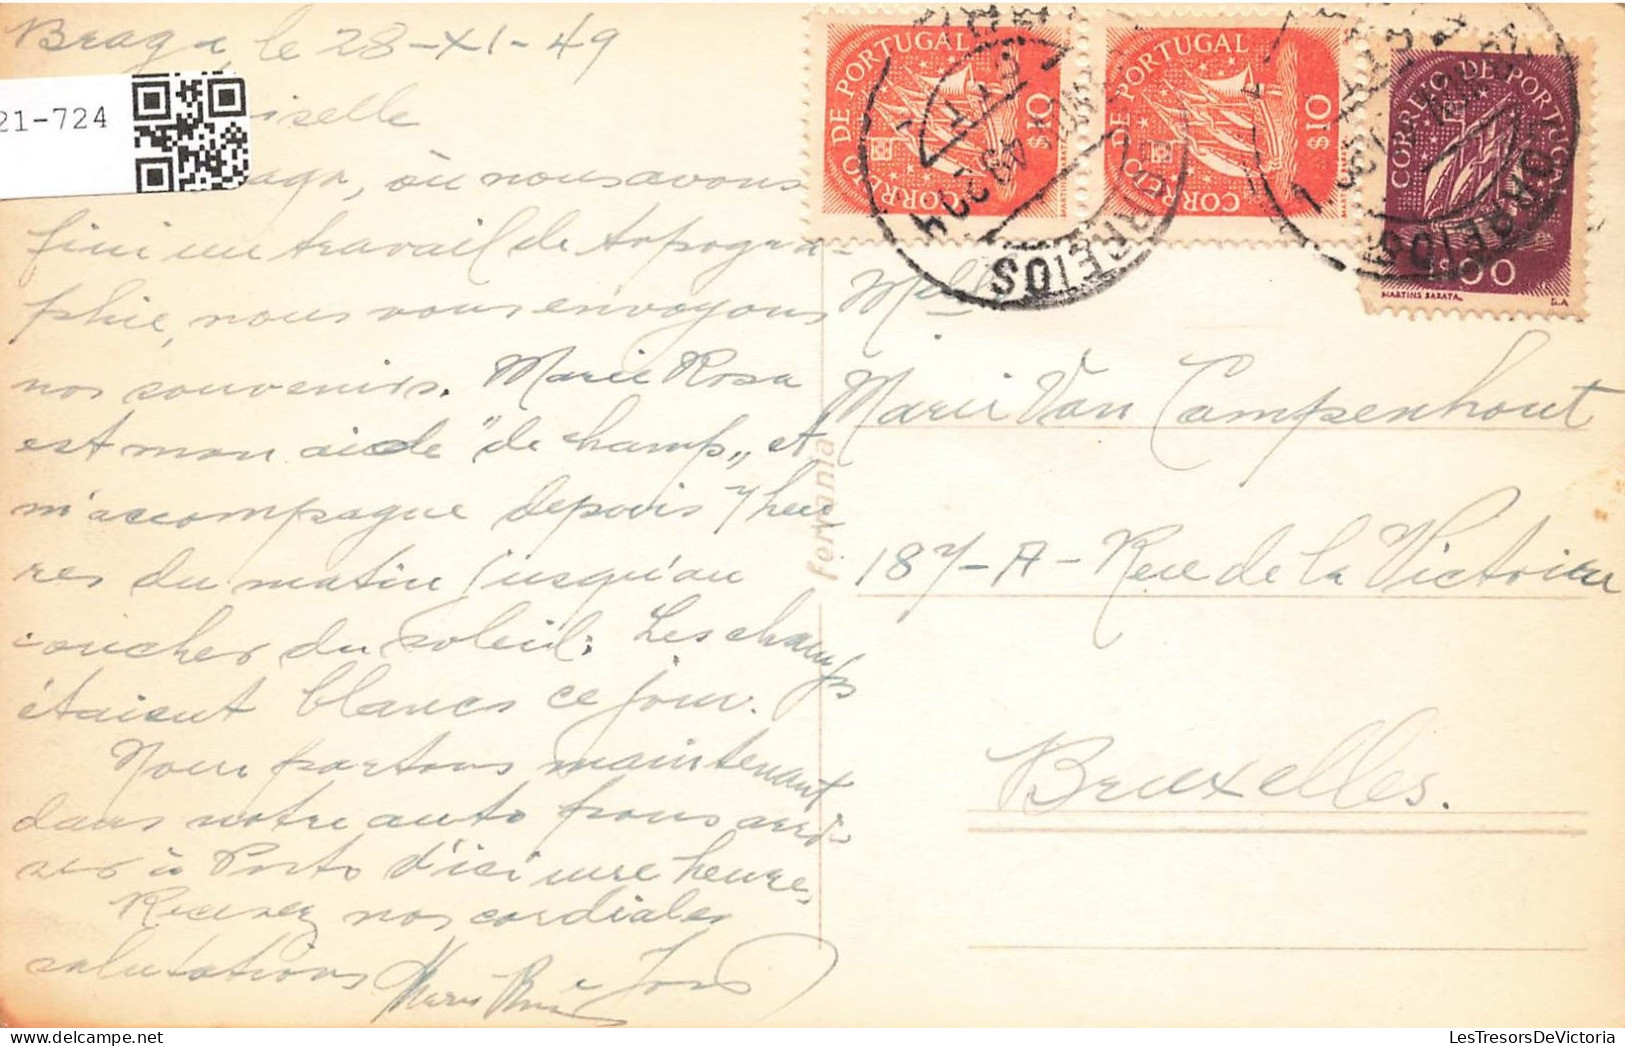 Braga, le 28-XI-49
21-724
iselle
aga, où nous avons
fini un travail de topogra-
phie, nous vous envoyons
nos souvenirs. Marie Rosa
est mon aide "de champ" et
m'accompagne depuis 7 heu
res du matin jusqu'au
coucher du soleil. Les champs
étaient blancs ce jour.
Nous partons maintenant
dans notre auto pour arri-
ver à Porto d'ici une heure.
Recevez nos cordiales
salutations
Marie Rosa e José
CORREIO DE PORTUGAL
$10
MARTINS BARATA
CORREIO DE PORTUGAL
$10
MARTINS
CORREIO DE PORTUGAL
1$00
MARTINS BARATA
CORREIOS
CORREIOS
Melle
Marie Van Campenhout
187-A-Rue de la Victoire
Bruxelles.
Fervania
LesTresorsDeVictoria.com